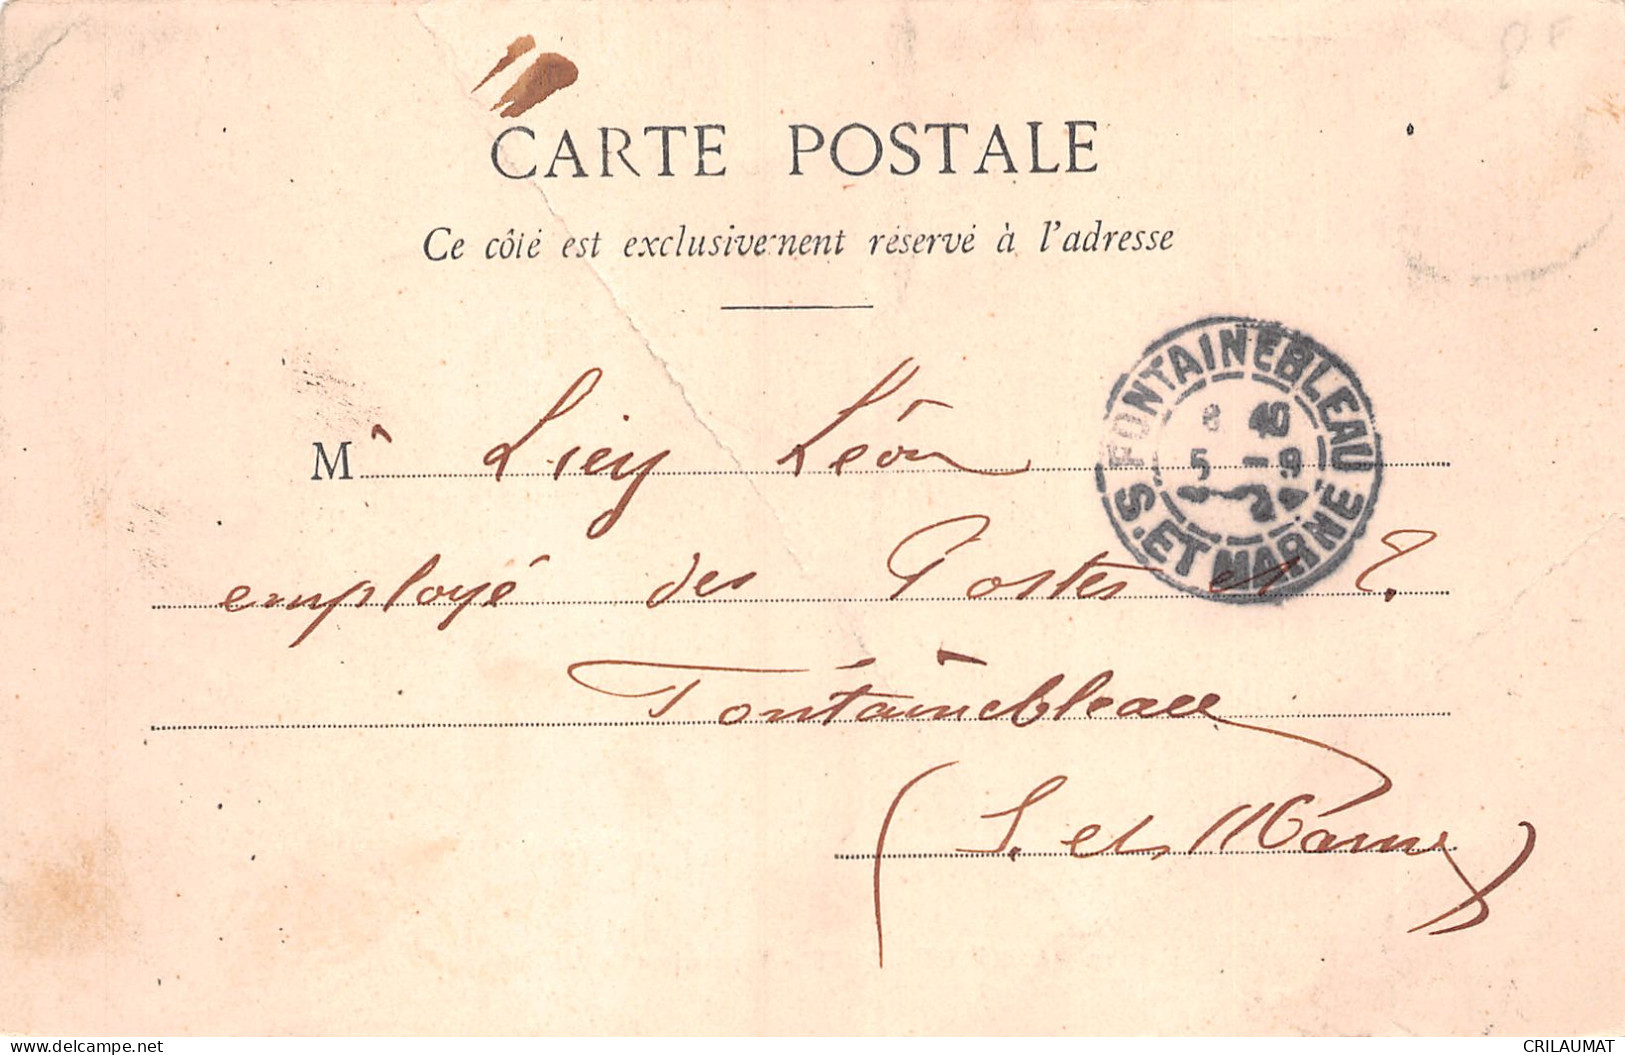 CARTE POSTALE
Ce côté est exclusivement réservé à l'adresse
FONTAINEBLEAU
40
5 - 9
S. ET MARNE
M Liey Léon
employé des Postes et T.
Fontainebleau
(S. et Marne)
CRILAUMAT